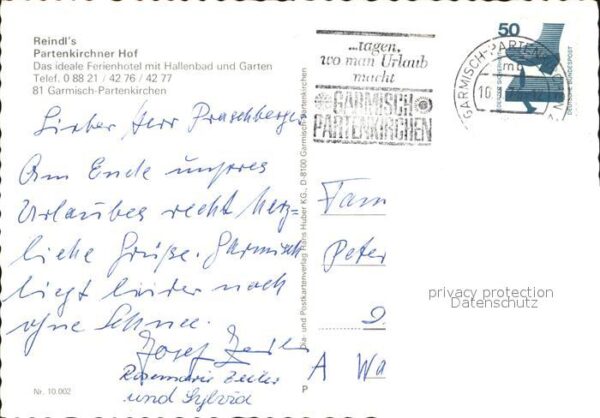 Reindl's
Partenkirchner Hof
Das ideale Ferienhotel mit Hallenbad und Garten
Telef. 0 88 21 / 42 76 / 42 77
81 Garmisch-Partenkirchen
Lieber Herr Praschberger
Am Ende unseres
Urlaubes recht herz-
liche Grüße. Garmisch
liegt leider noch
ohne Schnee.
Josef
Rosemarie Zeiler
und Sylvia
Nr. 10.002
Dia- und Postkartenverlag Hans Huber KG., D-8100 Garmisch-Partenkirchen
P
...tagen,
wo man Urlaub
macht
GARMISCH
PARTENKIRCHEN
GARMISCH-PARTEN
10.
50
DEUTSCHE BUNDESPOST
Fam
Peter
A Wa
privacy protection
Datenschutz